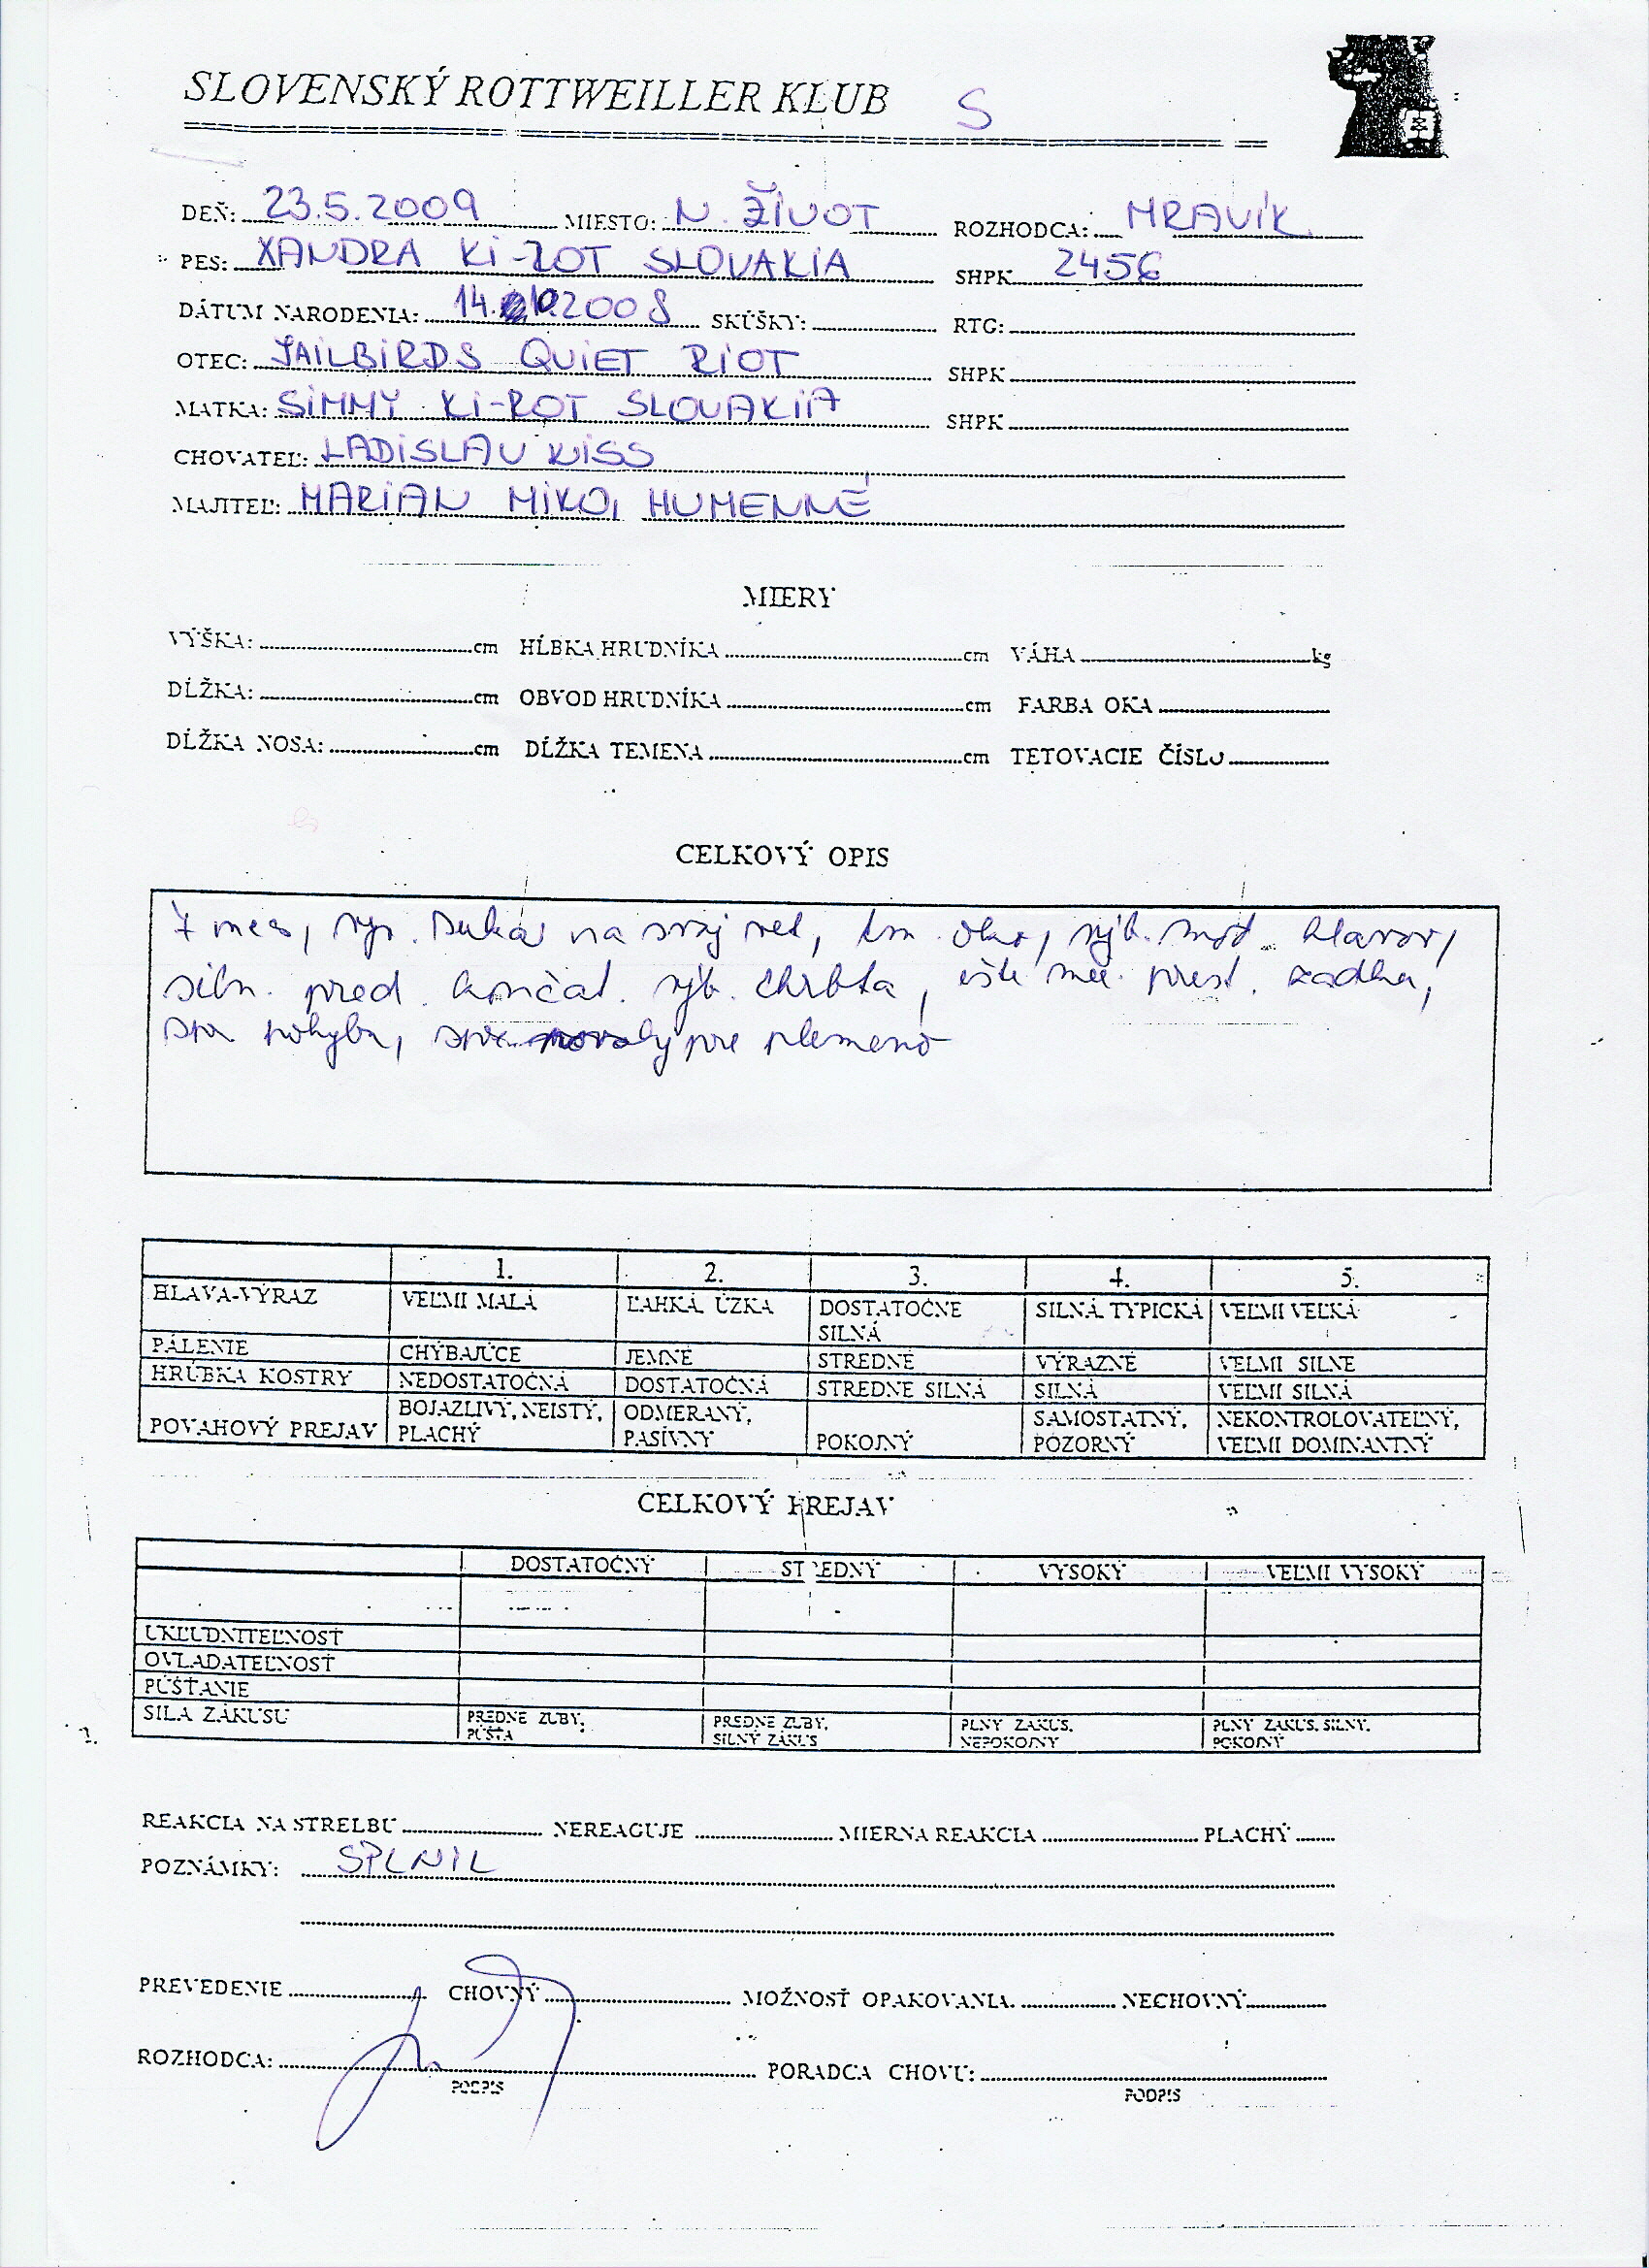 SLOVENSKÝ ROTTWEILLER KLUB S
DEŇ: 23.5.2009 MIESTO: N. ŽIVOT ROZHODCA: MRAVÍK
PES: XANDRA KI-ROT SLOVAKIA SHPK 2456
DÁTUM NARODENIA: 14. 2008 SKÚŠKY: RTG:
OTEC: JAILBIRDS QUIET RIOT SHPK
MATKA: SIMMY KI-ROT SLOVAKIA SHPK
CHOVATEĽ: LADISLAV KISS
MAJITEĽ: MARIAN MIKO, HUMENNÉ
MIERY
VÝŠKA: cm HĹBKA HRUDNÍKA cm VÁHA kg
DĹŽKA: cm OBVOD HRUDNÍKA cm FARBA OKA
DĹŽKA NOSA: cm DĹŽKA TEMENA cm TETOVACIE ČÍSLO
CELKOVÝ OPIS
7 mes, na svoj vek, tm. oko, výb.
siln. pred. končat. výb. chrbta, ešte prest. zadku,
pohybu, pre plemeno
1. 2. 3. 4. 5.
HLAVA-VÝRAZ VEĽMI MALÁ ĽAHKÁ ÚZKA DOSTATOČNE SILNÁ SILNÁ TYPICKÁ VEĽMI VEĽKÁ
PÁLENIE CHÝBAJÚCE JEMNÉ STREDNÉ VÝRAZNÉ VEĽMI SILNE
HRÚBKA KOSTRY NEDOSTATOČNÁ DOSTATOČNÁ STREDNE SILNÁ SILNÁ VEĽMI SILNÁ
POVAHOVÝ PREJAV BOJAZLIVÝ, NEISTÝ, PLACHÝ ODMERANÝ, PASÍVNY POKOJNÝ SAMOSTATNÝ, POZORNÝ NEKONTROLOVATEĽNÝ, VEĽMI DOMINANTNÝ
CELKOVÝ PREJAV
DOSTATOČNÝ STREDNÝ VYSOKÝ VEĽMI VYSOKÝ
UKĽUDNITEĽNOSŤ
OVLADATEĽNOSŤ
PÚŠŤANIE
SILA ZÁKUSU PREDNE ZUBY, PÚŠŤA PREDNE ZUBY, SILNÝ ZÁKUS PLNÝ ZÁKUS, NEPOKOJNÝ PLNÝ ZÁKUS, SILNÝ, POKOJNÝ
REAKCIA NA STRELBU NEREAGUJE MIERNA REAKCIA PLACHÝ
POZNÁMKY: SPLNIL
PREVEDENIE CHOVNÝ MOŽNOSŤ OPAKOVANIA NECHOVNÝ
ROZHODCA: PORADCA CHOVU:
PODPIS PODPIS